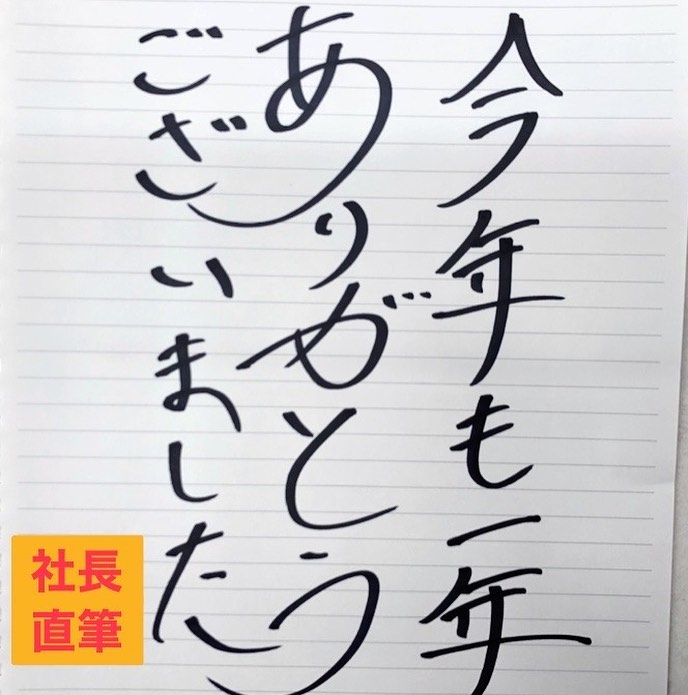 今年も一年
ありがとう
ございました
社長
直筆